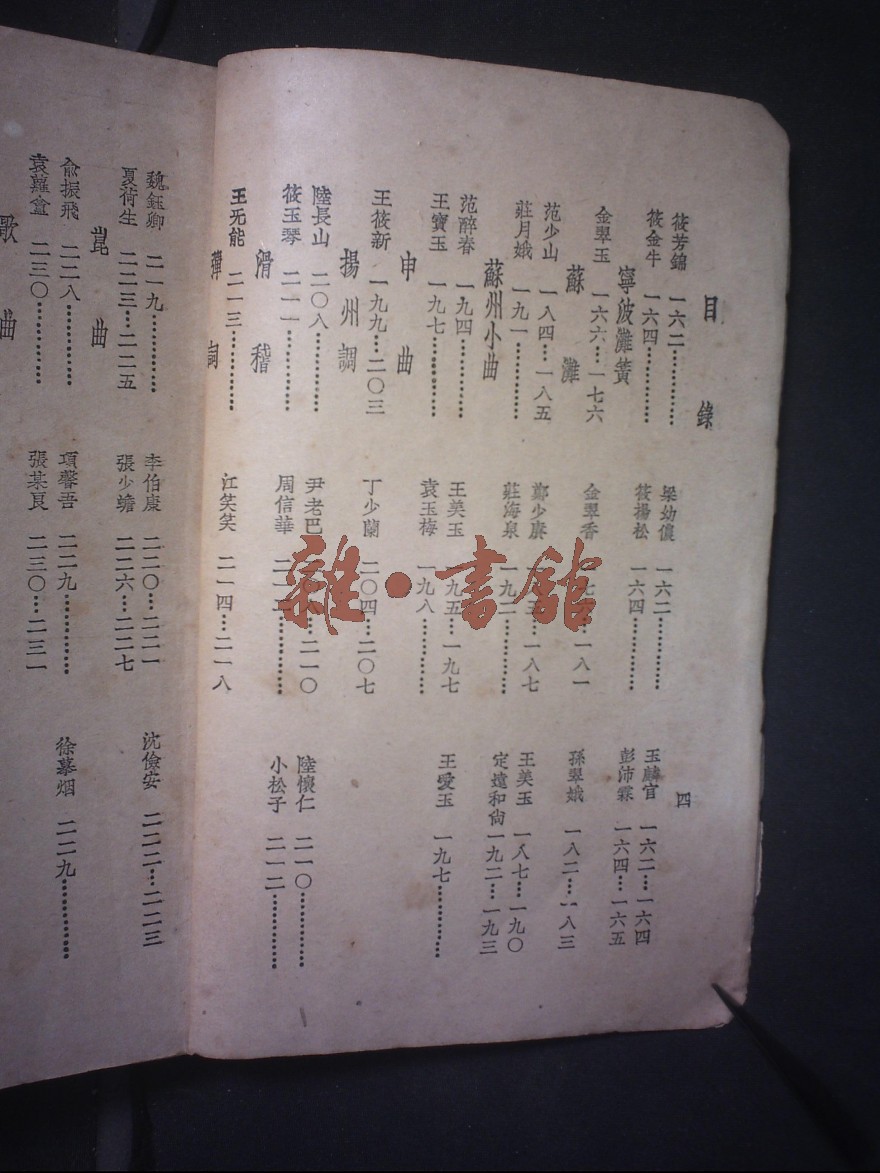 目錄
四
筱芳錦 一六二………… 梁幼儂 一六二………… 玉麟官 一六二…一六四
筱金牛 一六四………… 筱楊松 一六四………… 彭沛霖 一六四…一六五
寧波灘簧
金翠玉 一六六…一七六 金翠香 一八一 孫翠娥 一八二…一八三
蘇灘
范少山 一八四…一八五 鄭少賡 一八七 王美玉 一八七…一九〇
莊月娥 一九一………… 莊海泉 一九二………… 定遠和尙 一九二…一九三
蘇州小曲
范醉春 一九四………… 王美玉 一九五…一九七 王愛玉 一九七…………
王寶玉 一九七………… 袁玉梅 一九八…………
申曲
王筱新 一九九…二〇三 丁少蘭 二〇四…二〇七
揚州調
陸長山 二〇八………… 尹老巴 二一〇 陸懷仁 二一〇…………
筱玉琴 二一一………… 周信華 小松子 二一二…………
滑稽
王无能 二一三………… 江笑笑 二一四…二一八
彈詞
魏鈺卿 二一九………… 李伯康 二二〇…二二一 沈儉安 二二二…二二三
夏荷生 二二三…二二五 張少蟾 二二六…二二七
崑曲
俞振飛 二二八………… 項馨吾 二二九………… 徐慕烟 二二九…………
袁蘿盦 二三〇………… 張某良 二三〇…二三一
歌曲
雜·書館